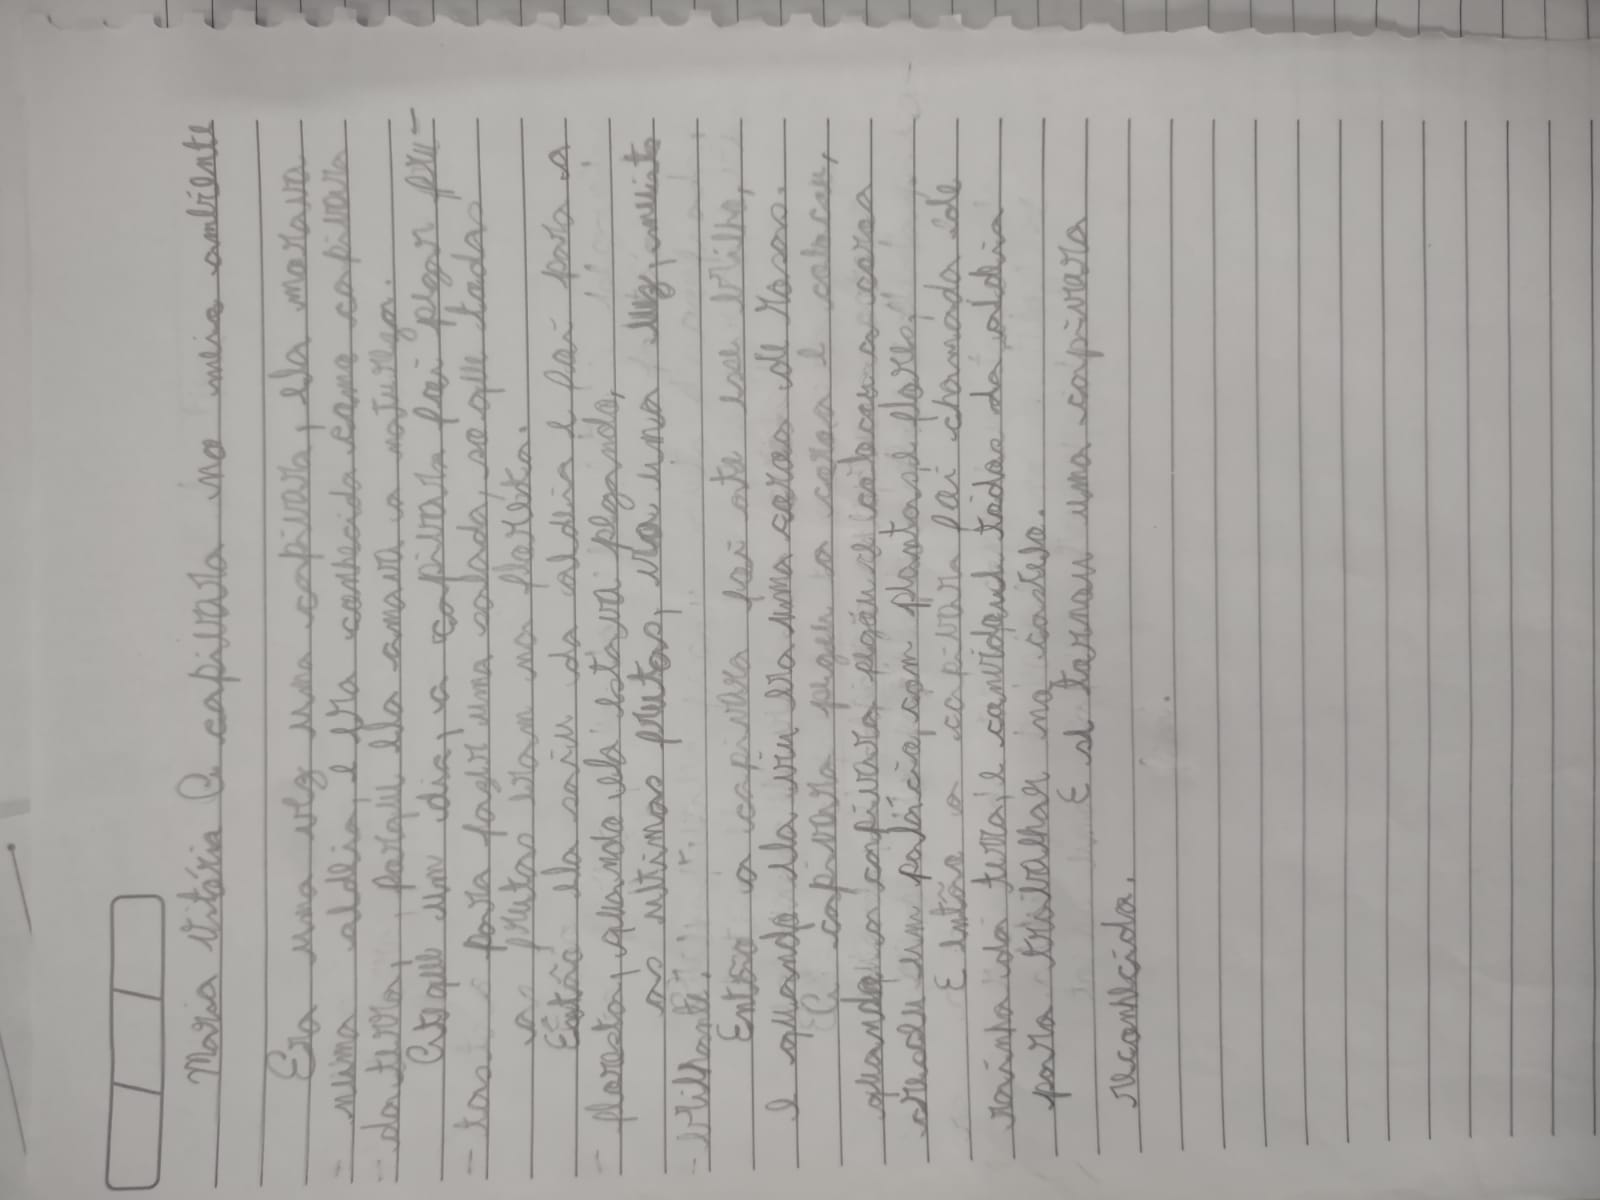 Maria Vitória A capivara no meio ambiente
Era uma vez uma capivara, ela morava
numa aldeia, e era conhecida como capivara
da terra, porque ela amava a natureza.
Até que um dia, a capivara foi pegar fru-
tas para fazer uma salada, só que todas
as frutas eram na floresta.
Então ela saiu da aldeia e foi para a
floresta, quando ela estava pegando,
as ultimas frutas, viu uma luz, muito
brilhante.
Então a capivara foi até esse brilho,
e quando ela viu era uma coroa de rosas.
A capivara pegou a coroa e colocou,
quando a capivara pegou e colocou a coroa
um palácio, com plantas e flores,
E então a capivara foi chamada de
rainha da terra, e convidou todos da aldeia
para trabalhar no castelo.
E se tornou uma capivara
reconhecida.